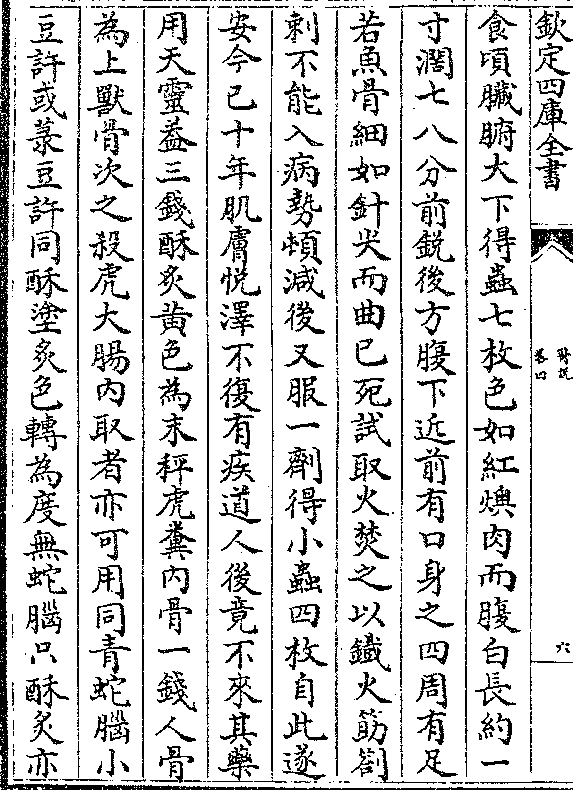 欽定四庫全書
醫說
卷四
六
食頃臟腑大下得蟲七枚色如紅燠肉而腹白長約一
寸濶七八分前鋭後方腹下近前有口身之四周有足
若魚骨細如針尖而曲已死試取火焚之以鐵火筯劄
刺不能入病勢頓減後又服一劑得小蟲四枚自此遂
安今已十年肌膚悦澤不復有疾道人後竟不來其藥
用天靈葢三錢酥炙黄色為末秤虎糞内骨一錢人骨
為上獸骨次之殺虎大腸内取者亦可用同青蛇腦小
豆許或菉豆許同酥塗炙色轉為度無蛇腦只酥炙亦